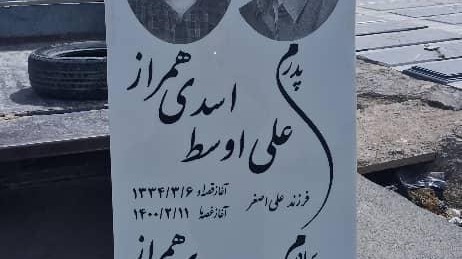 پدرم
علی اوسط اسدی همراز
فرزند علی اصغر
آغاز قصه‌ او ۱۳۳۴/۳/۶
آغاز غصه‌ها ۱۴۰۰/۲/۱۱
همراز